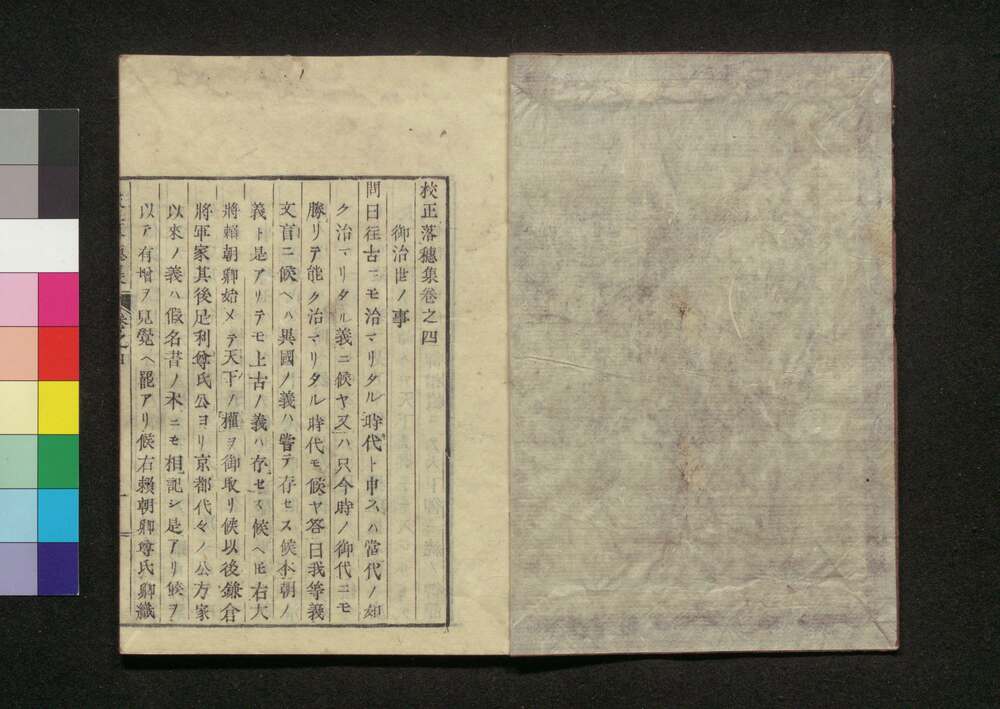 校正落穗集卷之四
御治世ノ事
問曰往古ニモ治マリタル時代ト申スハ當代ノ如
ク治マリタル義ニ候ヤ又ハ只今時ノ御代ニモ
勝リテ能ク治マリタル時代モ候ヤ答曰我等義
文盲ニ候ヘハ異國ノ義ハ甞テ存セス候本朝ノ
義ト是アリテモ上古ノ義ハ存セス候ヘ𪜈右大
將賴朝卿始メテ天下ノ權ヲ御取リ候以後鎌倉
將軍家其後足利尊氏公ヨリ京都代々ノ公方家
以來ノ義ハ假名書ノ本ニモ相記シ是アリ候ヲ
以テ有增ヲ見覺ヘ罷アリ候右賴朝卿尊氏卿織
卷之四
一